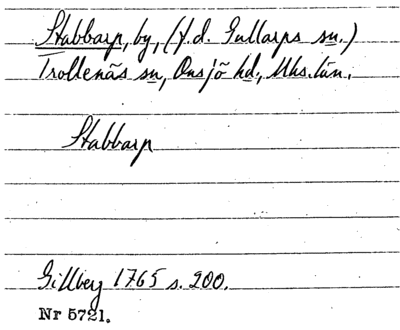 Stabbarp, by, (f.d. Gullarps sn.)
Trollenäs sn, Onsjö hd., Mhs. län.
Stabbarp
Gillberg 1765 s. 200.
Nr 5721.